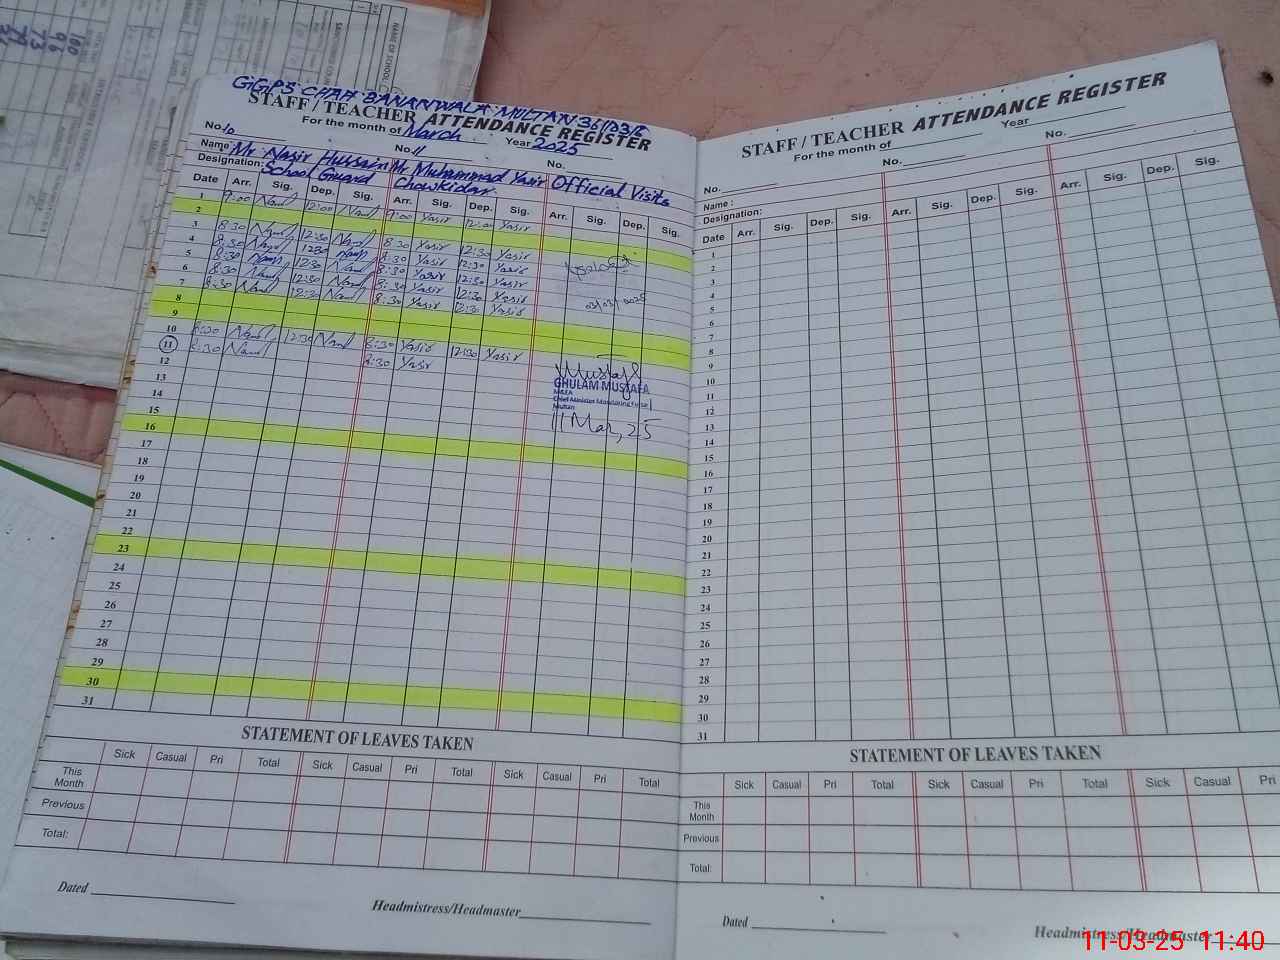 NAME OF SCHOOL
100
96
73
GGPS CHAH BANANWALA MULTAN
STAFF / TEACHER ATTENDANCE REGISTER
For the month of March Year 2025
No. 10 No. 11 No.
Name Mr. Nasir Hussain Mr Muhammad Yasir Official Visits
Designation: School Guard Chowkidar.
Date Arr. Sig. Dep. Sig. Arr. Sig. Dep. Sig. Arr. Sig. Dep. Sig.
1 9:00 12:00 9:00 Yasir 12:00 Yasir
2
3 8:30 12:30 8:30 Yasir 12:30 Yasir
4 8:30 12:30 8:30 Yasir 12:30 Yasir
5 8:30 12:30 8:30 Yasir 12:30 Yasir
6 8:30 12:30 8:30 Yasir 12:30 Yasir
7 8:30 12:30 8:30 Yasir 12:30 Yasir 03/03/2025
8
9
10 8:30 12:30 8:30 Yasir 12:30 Yasir
11 8:30 8:30 Yasir
12
13
14
15
16
17
18
19
20
21
22
23
24
25
26
27
28
29
30
31
Mustafa
GHULAM MUSTAFA
MEA
Chief Minister Monitoring Force
Multan
11 Mar, 25
STATEMENT OF LEAVES TAKEN
Sick Casual Pri Total Sick Casual Pri Total Sick Casual Pri Total
This Month
Previous
Total:
Dated
Headmistress/Headmaster
STAFF / TEACHER ATTENDANCE REGISTER
For the month of Year
No. No. No.
Name :
Designation:
Date Arr. Sig. Dep. Sig. Arr. Sig. Dep. Sig. Arr. Sig. Dep. Sig.
1
2
3
4
5
6
7
8
9
10
11
12
13
14
15
16
17
18
19
20
21
22
23
24
25
26
27
28
29
30
31
STATEMENT OF LEAVES TAKEN
Sick Casual Pri Total Sick Casual Pri Total Sick Casual Pri
This Month
Previous
Total:
Dated
Headmistress/Headmaster
11-03-25 11:40